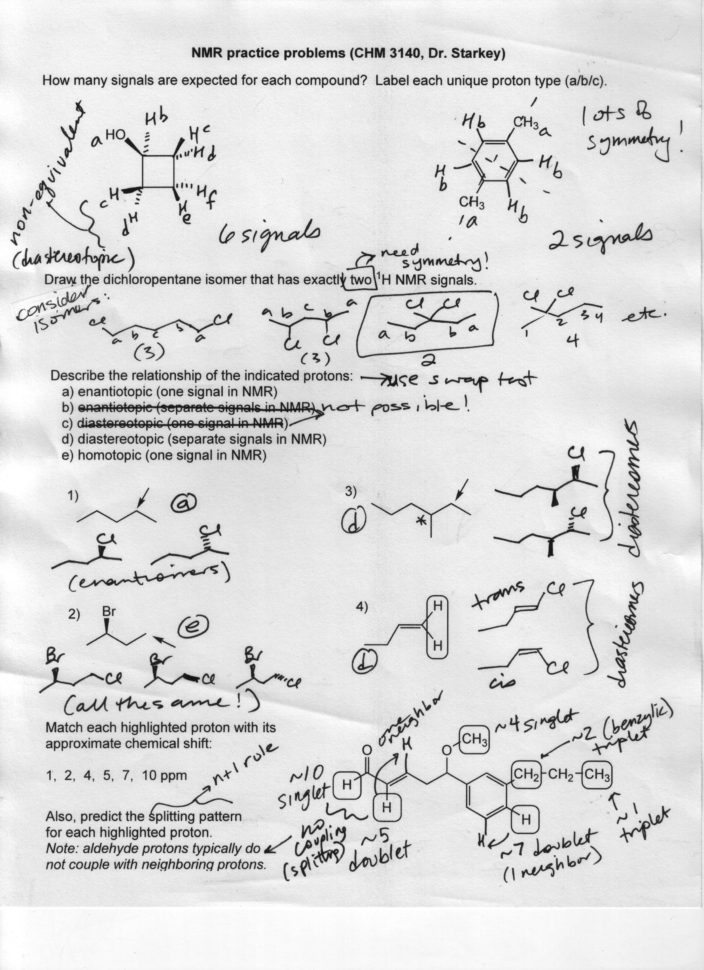 NMR practice problems (CHM 3140, Dr. Starkey)
How many signals are expected for each compound? Label each unique proton type (a/b/c).
non-equivalent
(diastereotopic)
a HO
Hb
Hc
Hd
c H
d H
He
Hf
6 signals
Hb
CH3 a
H
b
Hb
CH3
a
Hb
lots of
symmetry!
2 signals
need
symmetry!
Draw the dichloropentane isomer that has exactly two 1H NMR signals.
consider
isomers:
Cl a b c b a Cl
(3)
a b c b a
Cl Cl
(3)
Cl Cl
a b b a
2
Cl Cl
1 2 3 4
4
etc.
Describe the relationship of the indicated protons: → use swap test
a) enantiotopic (one signal in NMR)
b) enantiotopic (separate signals in NMR) not possible!
c) diastereotopic (one signal in NMR)
d) diastereotopic (separate signals in NMR)
e) homotopic (one signal in NMR)
1)
a
Cl
Cl
(enantiomers)
3)
d
*
Cl
Cl
diastereomers
2)
Br
e
Br Cl
Br Cl
Br Cl
(all the same!)
4)
H
H
d
trans Cl
cis Cl
diastereomers
Match each highlighted proton with its
approximate chemical shift:
1, 2, 4, 5, 7, 10 ppm
n+1 rule
Also, predict the splitting pattern
for each highlighted proton.
Note: aldehyde protons typically do
not couple with neighboring protons.
no
coupling
(splitting)
~10
singlet
one neighbor
H
O
H
H
~5
doublet
O
CH3
~4 singlet
~2 (benzylic)
triplet
CH2
CH2
CH3
~1
triplet
H
H
~7 doublet
(1 neighbor)